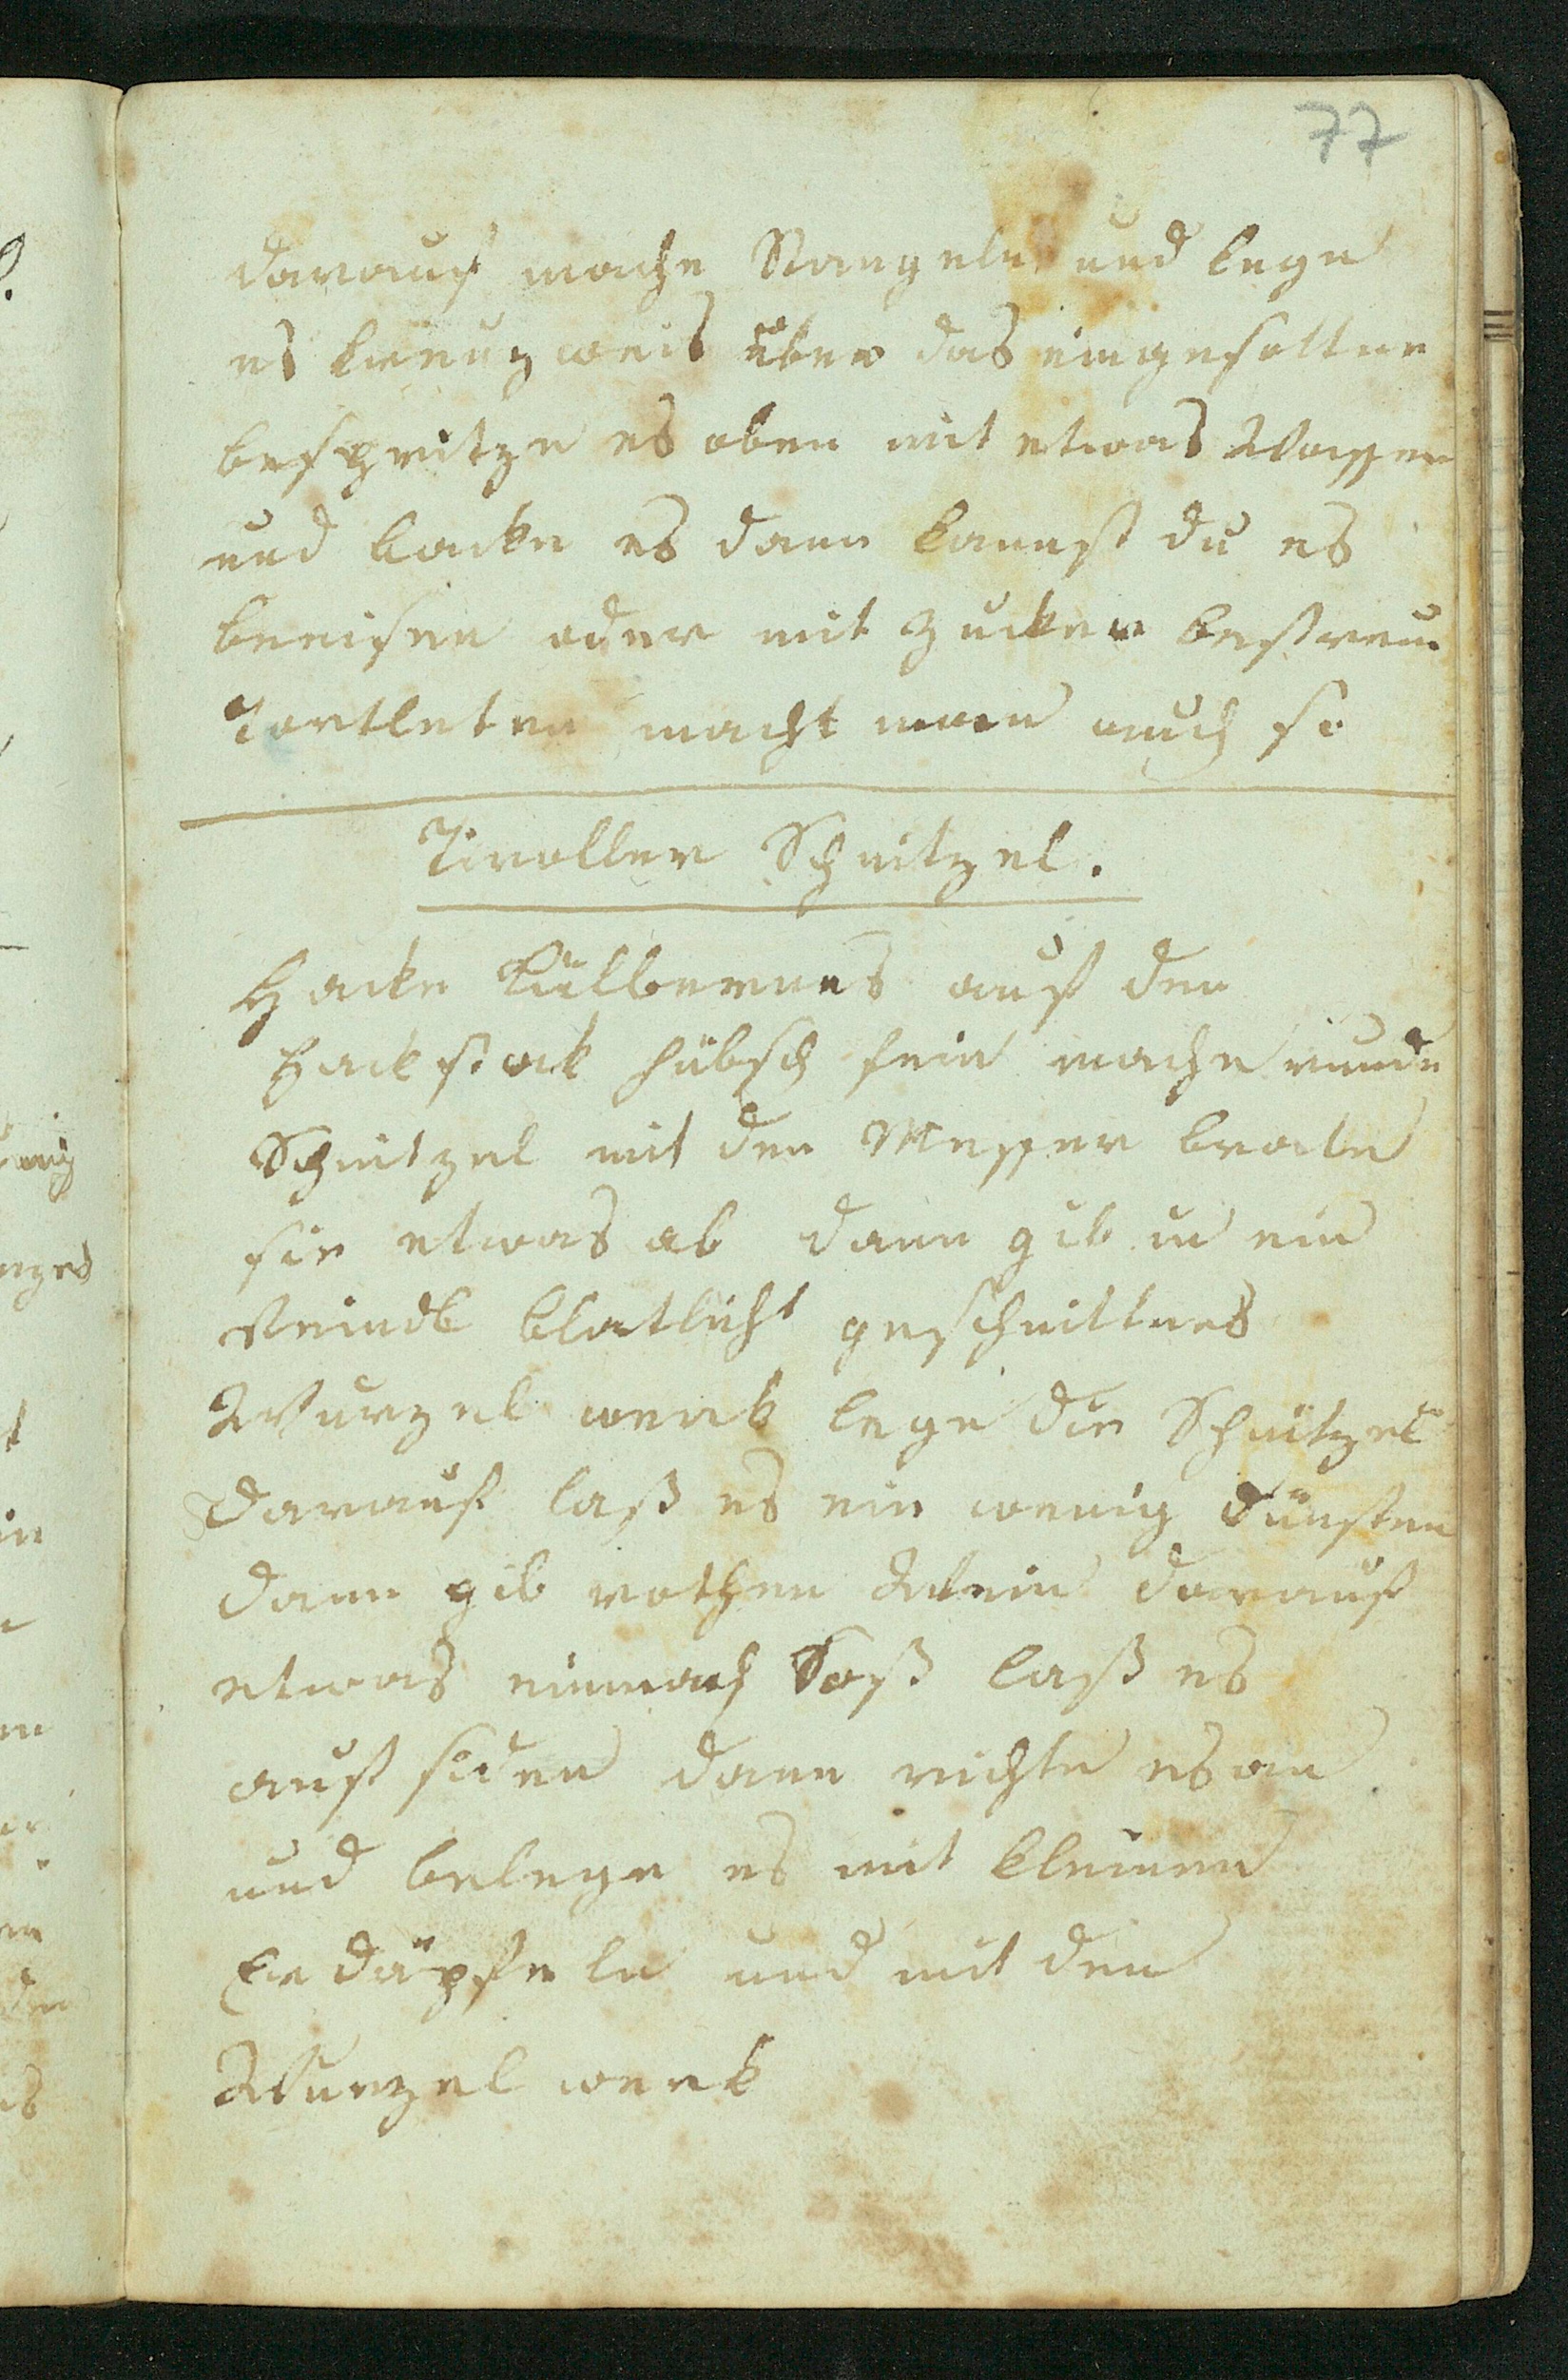 77
darauf mache Stangeln und lege
es kreuzweis über das eingesottne
bespritze es oben mit etwas Wasser
und backe es dann kannst du es
beeisen oder mit Zucker bestreun
Tortleten macht man auch so
Tiroller Schnitzel.
Hacke Kälbernes auf den
Hackstock hübsch fein mache runde
Schnitzel mit den Messer brate
sie etwas ab dann gib in ein
Reindl blatlicht geschnittnes
Wurzel werk lege die Schnitzel
darauf laß es ein wenig dünsten
dann gib rothen Wein darauf
etwas einmach Soß laß es
auf siden dann richte es an
und belege es mit kleinen
Erdäpfeln und mit den
Wurzel werk